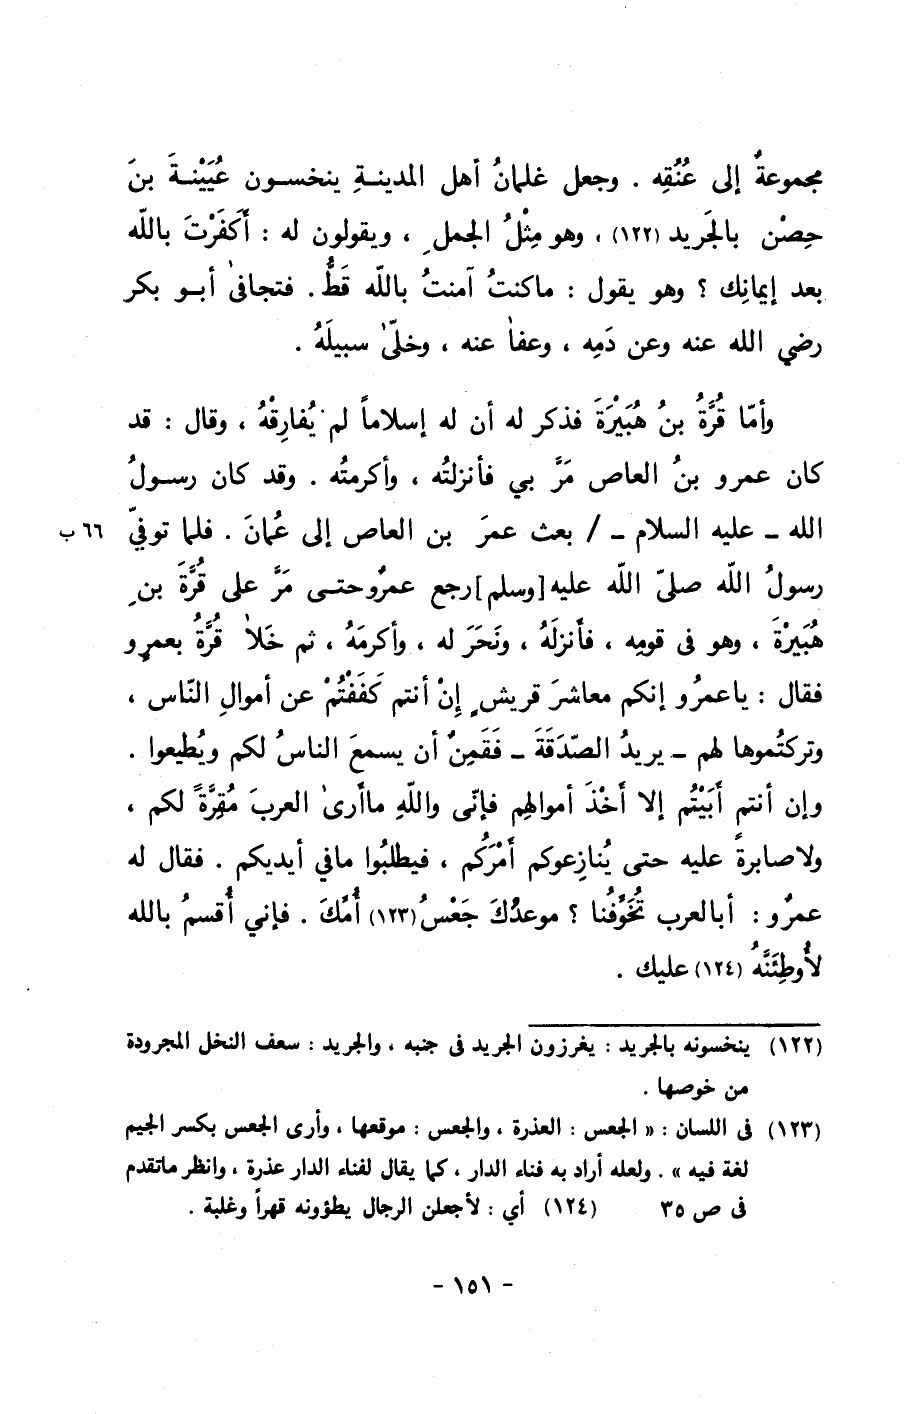 مجموعةٌ إلى عُنُقِه . وجعل غلمانُ أهل المدينةِ ينخسون عُيَيْنةَ بنَ
حِصْن بالجَريد (١٢٢) ، وهو مِثْلُ الجملِ ، ويقولون له : أَكَفَرْتَ بالله
بعد إيمانِك ؟ وهو يقول : ماكنتُ آمنتُ بالله قَطُّ . فتجافىٰ أبو بكر
رضي الله عنه وعن دَمِه ، وعفاٰ عنه ، وخلّىٰ سبيلَهُ .
وأمّا قُرَّةُ بنُ هُبَيْرَةَ فذكر له أن له إسلاماً لم يُفارِقْهُ ، وقال : قد
كان عمرو بنُ العاص مَرَّ بي فأنزلتُه ، وأكرمتُه . وقد كان رسولُ
الله ــ عليه السلام ــ / بعث عمرَ بن العاص إلى عُمانَ . فلما توفيّ
٦٦ ب
رسولُ الله صلىّ الله عليه [وسلم] رجع عمرُو حتى مَرَّ على قُرَّةَ بنِ
هُبَيرْةَ ، وهو فى قومِه ، فأنزلَهُ ، ونَحَرَ له ، وأكرمَهُ ، ثم خَلاٰ قُرَّةُ بعمرٍو
فقال : ياعمرُو إنكم معاشرَ قريشٍ إنْ أنتم كَفَفْتُمْ عن أموالِ النّاس ،
وتركتُموها لهم ــ يريدُ الصّدَقَةَ ــ فَقَمِنٌ أن يسمعَ الناسُ لكم ويُطيعوا .
وإن أنتم أَبَيْتُم إلا أَخْذَ أموالهِم فإنّى واللّهِ ماأرىٰ العربَ مُقِرَّةً لكم ،
ولاصابرةً عليه حتى يُنازِعوكم أَمْرَكُم ، فيطلبُوا مافي أيديكم . فقال له
عمرٌو : أبالعرب تُخَوِّفُنا ؟ موعدُكَ جَعْسُ (١٢٣) أُمِّكَ . فإني أُقسمُ بالله
لأُوطِئَنَّهُ (١٢٤) عليك .
(١٢٢) ينخسونه بالجريد : يغرزون الجريد فى جنبه ، والجريد : سعف النخل المجرودة
من خوصها .
(١٢٣) فى اللسان : « الجعس : العذرة ، والجعس : موقعها ، وأرى الجعس بكسر الجيم
لغة فيه » . ولعله أراد به فناء الدار ، كما يقال لفناء الدار عذرة ، وانظر ماتقدم
فى ص ٣٥ (١٢٤) أي : لأجعلن الرجال يطؤونه قهراً وغلبة .
- ١٥١ -